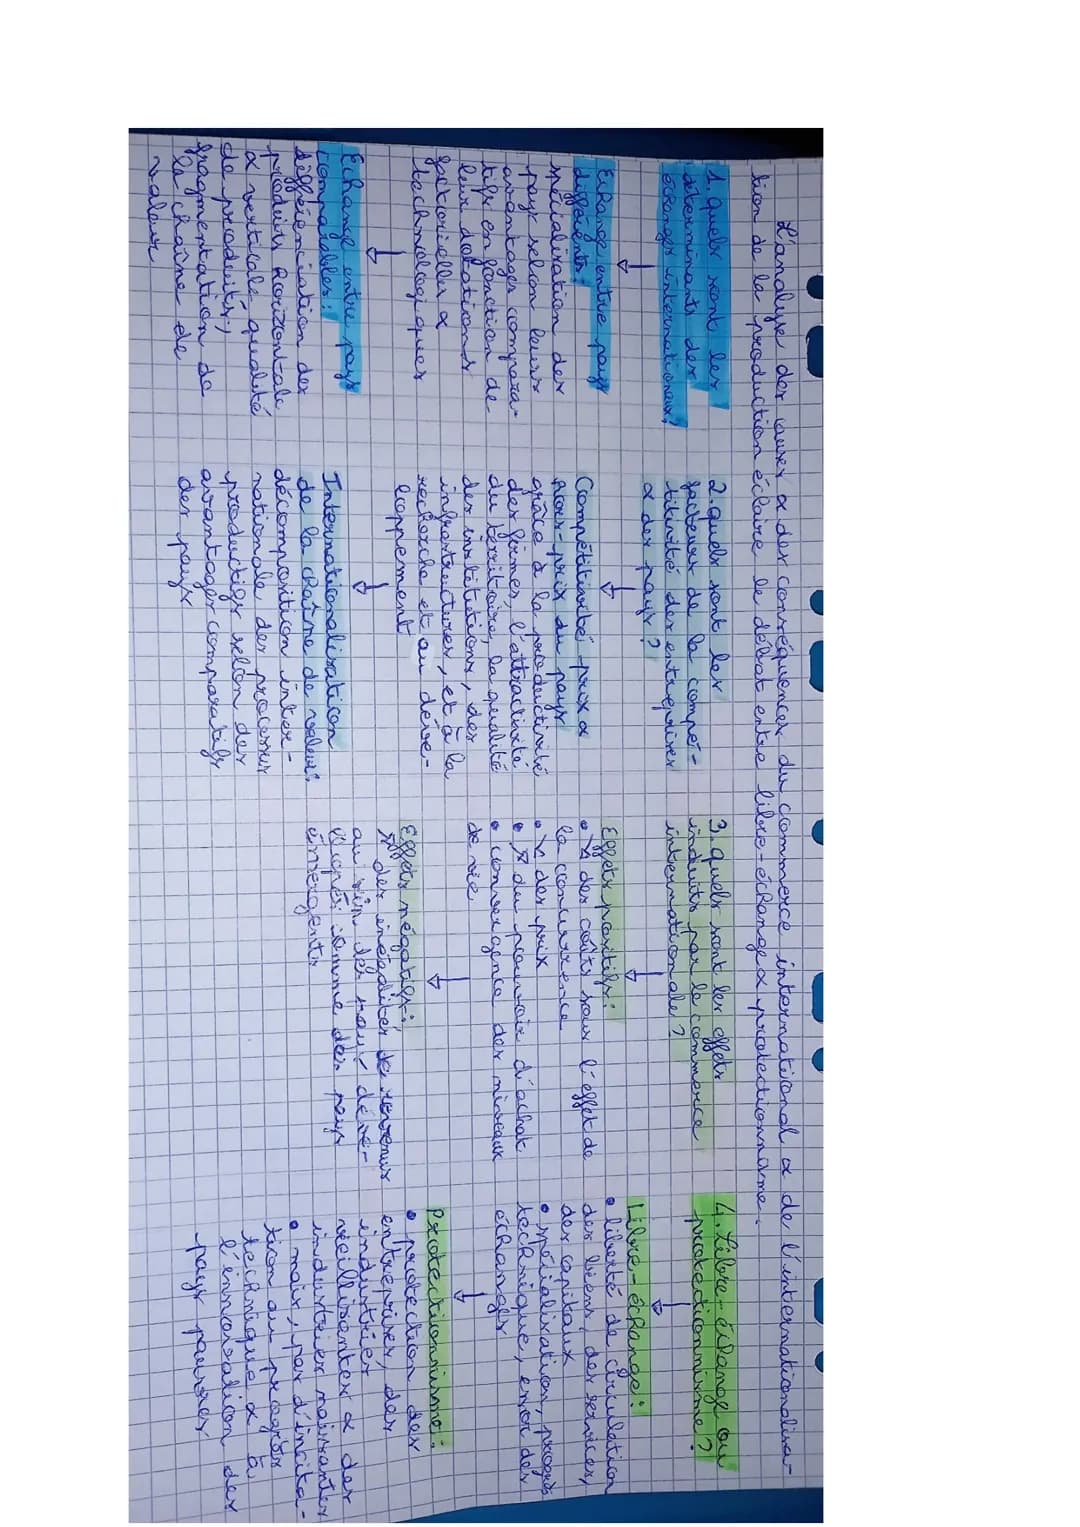 L'analyse des causes & des conséquences du commerce international & de l'internationalisa-
tion de la production éclaire le débat entre libre-échange & protectionnisme.
1. quels sont les
déterminants des
échanges internationaux?
Echange entre pays
différents:
spécialisation des
pays selon leurs
avantages compara-
tifs en fonction de
leur dotations
factorielles &
technologiques
Echange entre pays
comparables:
différenciation des
produits horizontale
& verticale, qualité
de produits;
fragmentation de
la chaîne de
valeur
2. quels sont les
facteurs de la compét-
titivité des entreprises
& des pays ?
Compétitivité-prix &
hors-prix du pays
grâce à la productivité
des firmes, l'attractivité
du territoire, la qualité
des institutions, des
infrastructures, et à la
recherche et au déve-
loppement
Internationalisation
de la chaîne de valeur:
décomposition inter-
nationale des processus
productifs selon des
avantages comparatifs
des pays
3. quels sont les effets
induits par le commerce
internationale ?
Effets positifs:
• ↘ des coûts sous l'effet de
la concurrence
• ↘ des prix
• ↗ du pouvoir d'achat
• convergence des niveaux
de vie
Effets négatifs:
↗ des inégalités de revenus
au sein des pays déve-
loppés comme des pays
émergents
4. Libre-échange ou
protectionnisme ?
Libre-échange:
• liberté de circulation
des biens, des services,
des capitaux
• spécialisation, progrès
technique, essor des
échanges
Protectionnisme:
• protection des
entreprises, des
industries
vieillissantes & des
industries naissantes
• mais, pas d'incita-
tion au progrès
technique & à
l'innovation des
pays pauvres